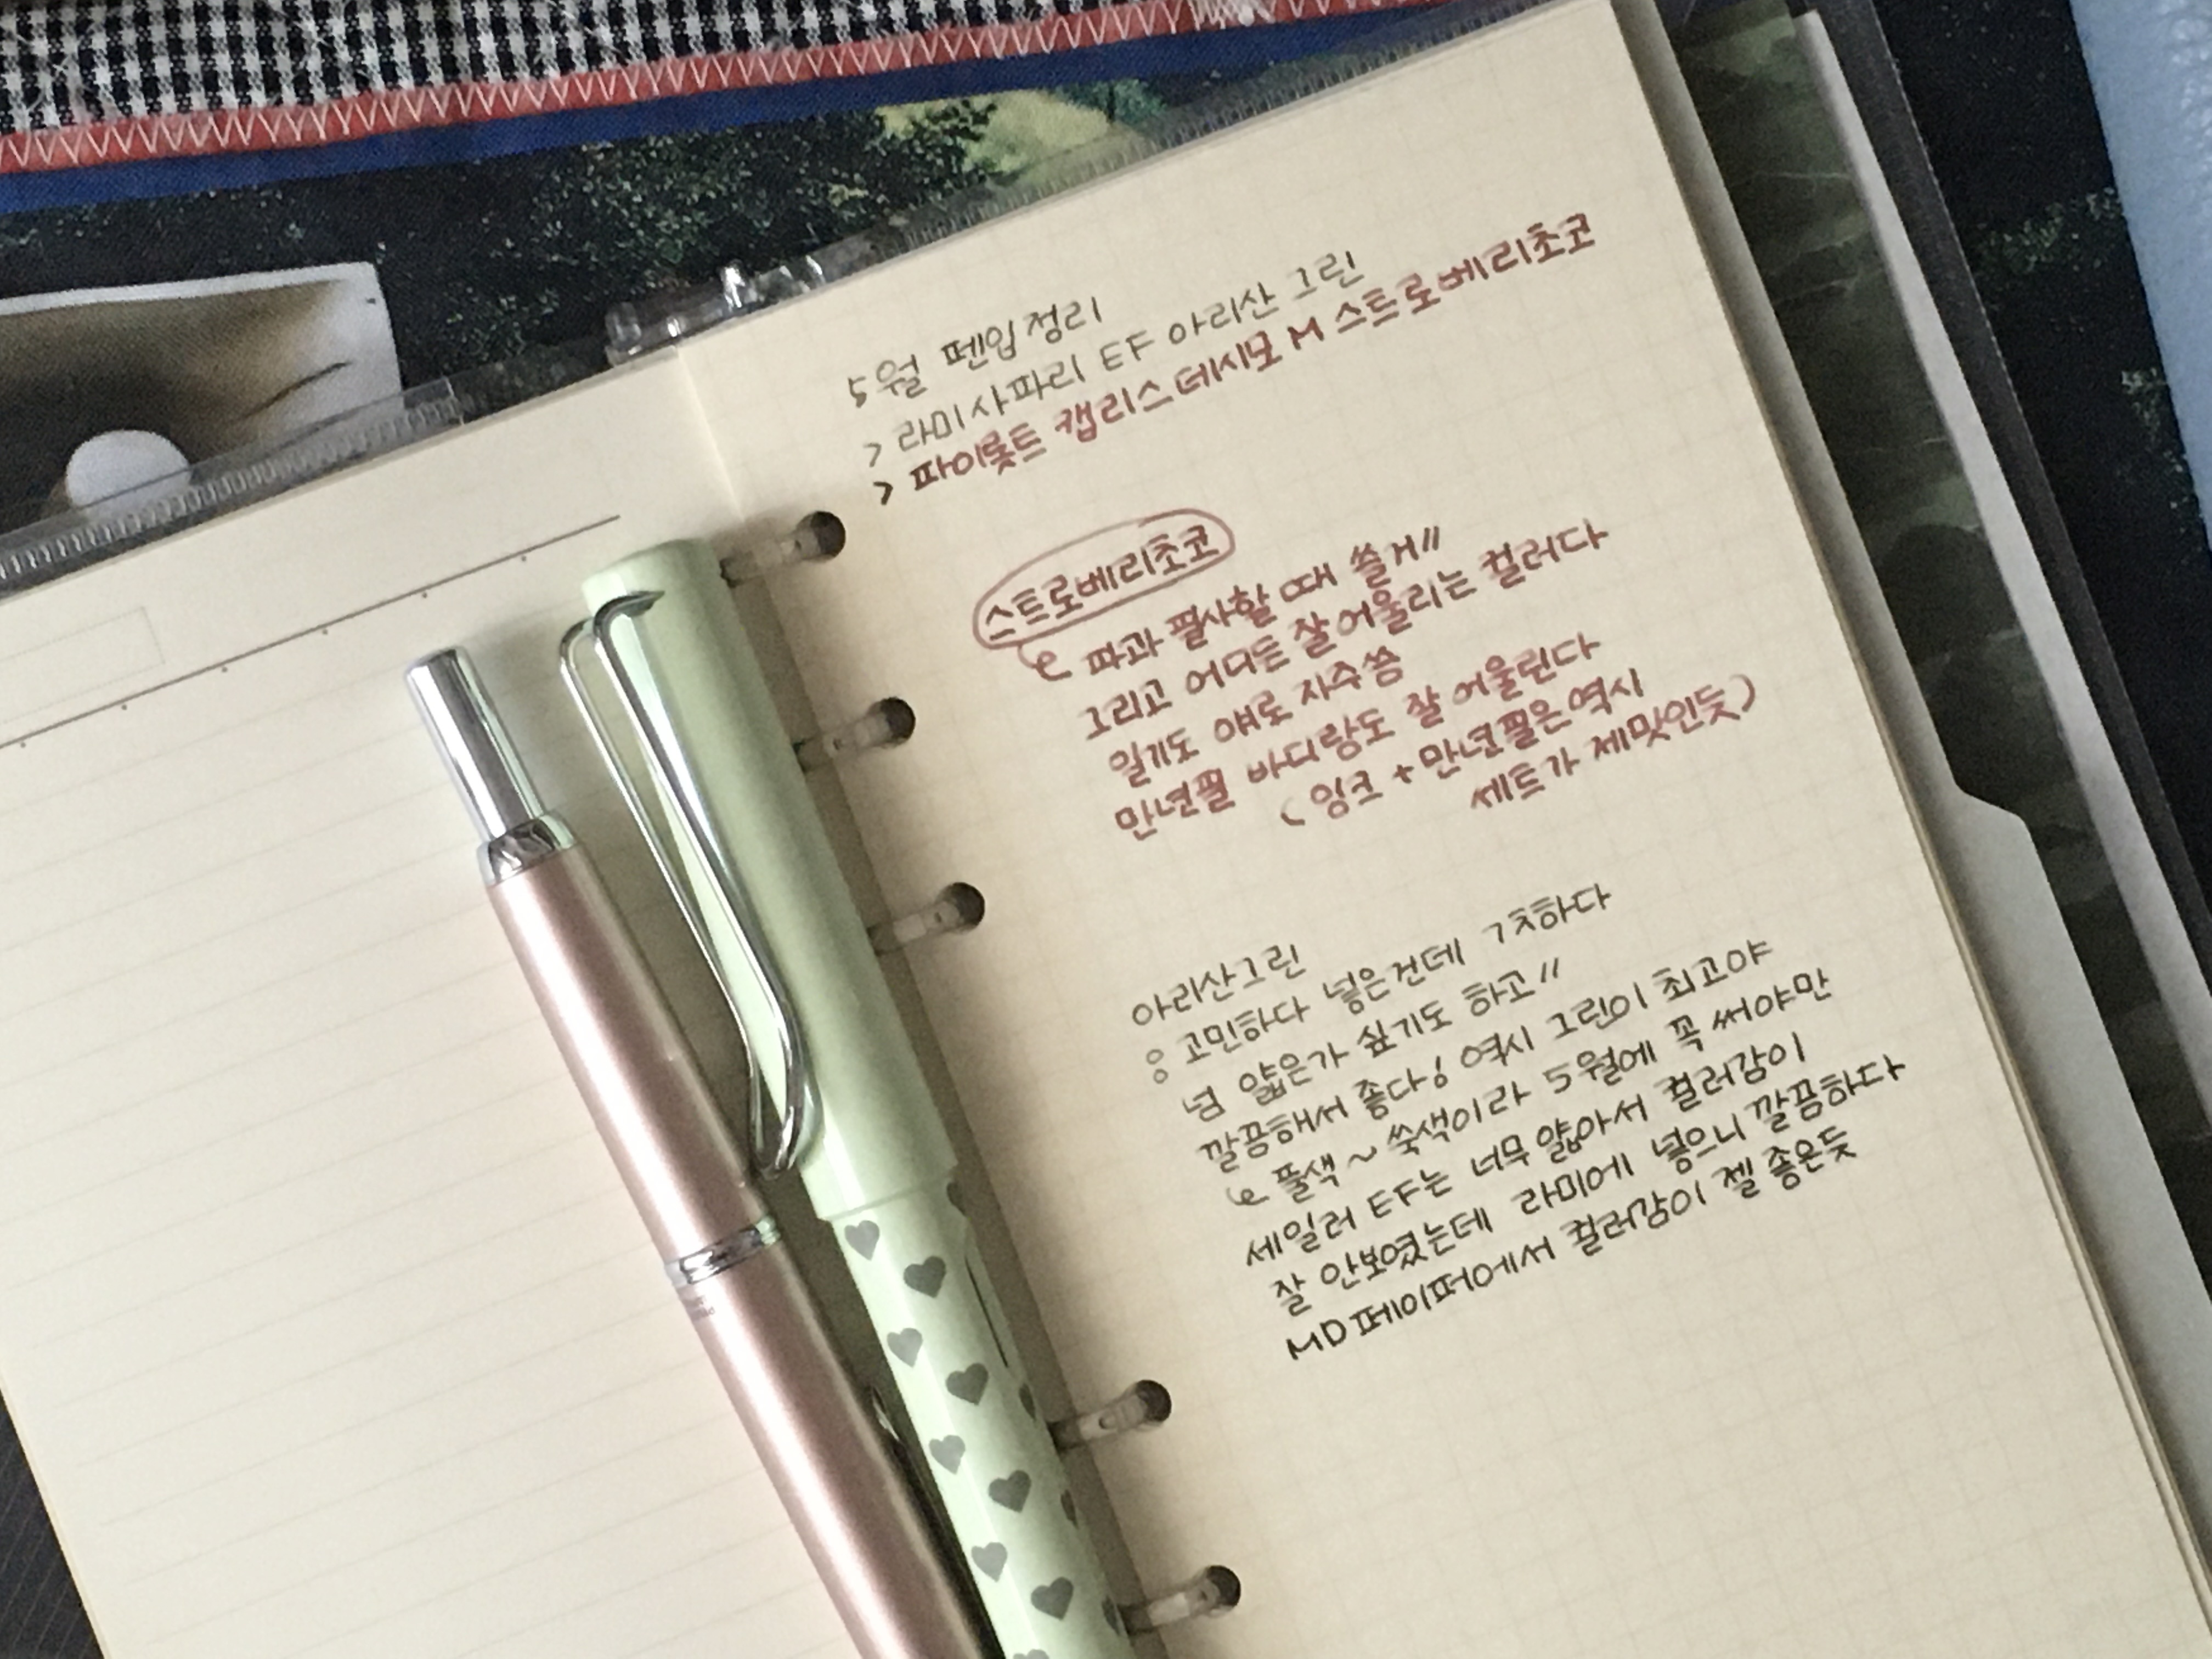 5월 펜입정리
> 라미 사파리 EF 아리산 그린
> 파이롯트 캡리스 데시모 M 스트로베리초코
스트로베리초코
파과 필사할 때 쓸거〃
그리고 어디든 잘 어울리는 컬러다
일기도 얘로 자주씀
만년필 바디랑도 잘 어울린다
(잉크 + 만년필은 역시
세트가 제맛인듯)
아리산그린
: 고민하다 넣은건데 ㄱㅊ하다
넘 얇은가 싶기도 하고〃
깔끔해서 좋다! 역시 그린이 최고야
풀색 ~ 쑥색이라 5월에 꼭 써야만
세일러 EF는 너무 얇아서 컬러감이
잘 안보였는데 라미에 넣으니 깔끔하다
MD페이퍼에서 컬러감이 젤 좋은듯